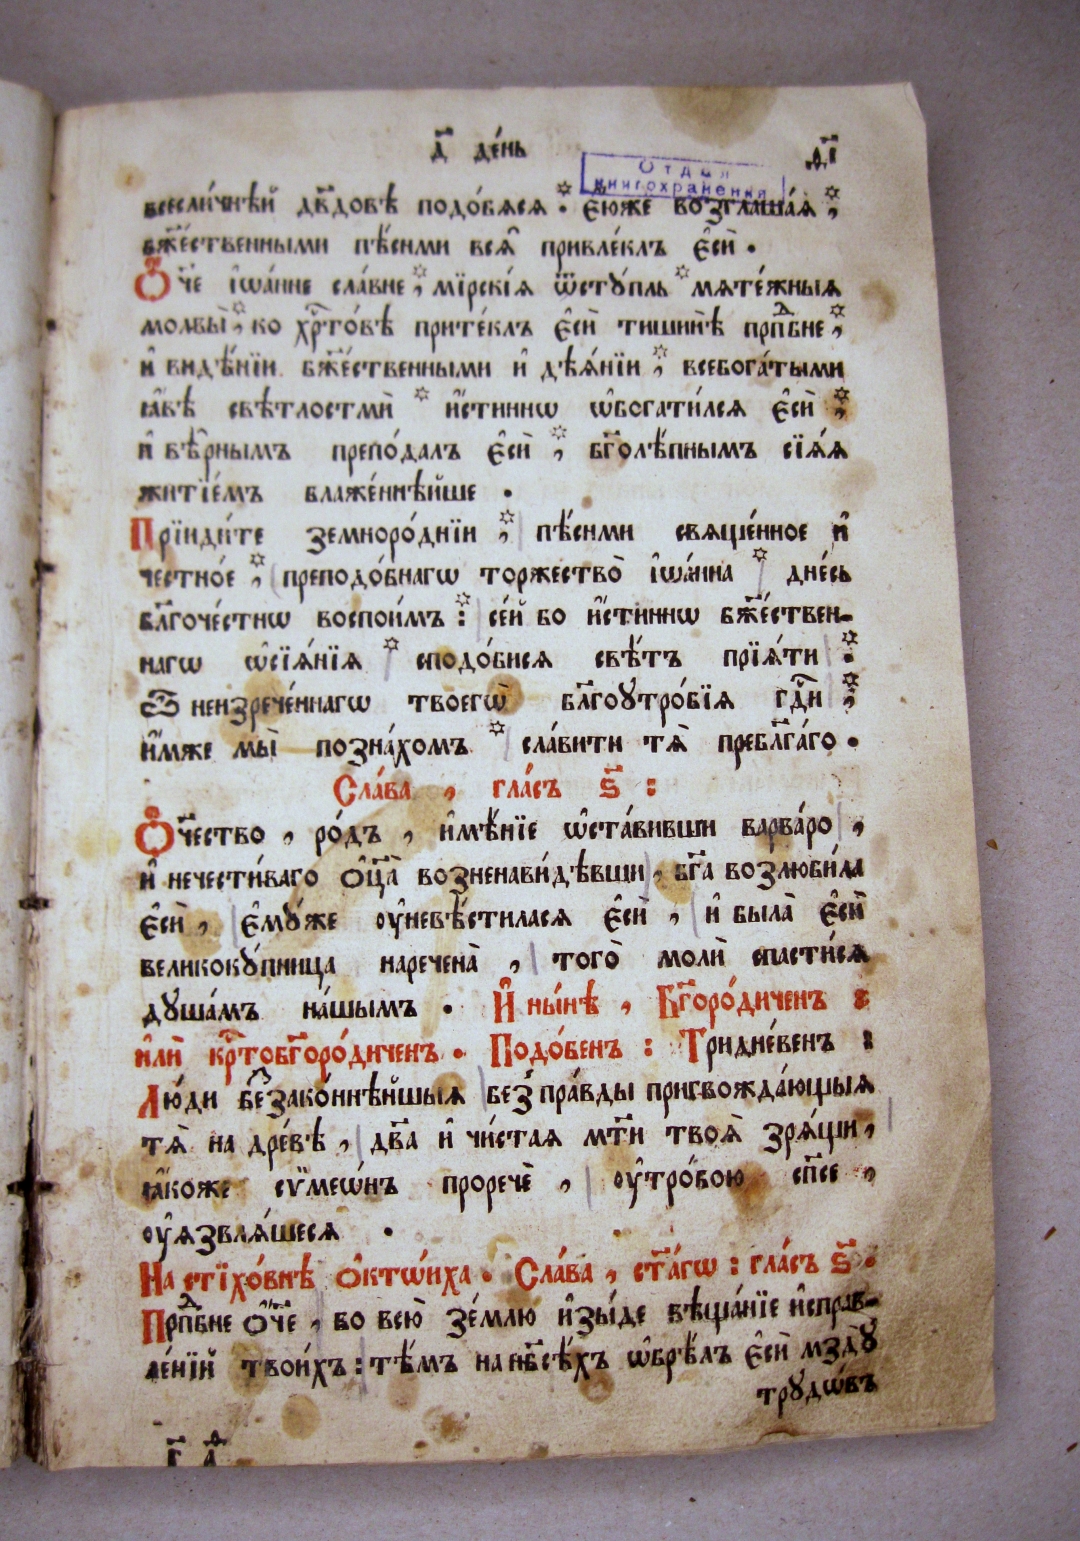 д҃ де́нь
д҃і
Отдел
книгохранения
всесли́чнѣй дв҃довѣ подо́бѧсѧ : є҆ю́же возглаша́ѧ ;
бж҃е́ственными пѣ́сньми всѧ̑ привле́клъ є҆сѝ .
Ѻ҆́ч҃е і҆ѡа́нне сла́вне ; мїрскі́ѧ ѿстꙋ́пль мѧте́жныѧ
молвы̀ ; ко хр҃то́вѣ прите́клъ є҆сѝ тишинѣ̀ прпⷣбне ;
и҆ видѣ́нїи бж҃е́ственными и҆ дѣѧ́нїи ; всебога́тыми
ꙗ҆́вѣ свѣ́тлостмѝ и҆́стиннѡ ѡ҆богати́лсѧ є҆сѝ ;
и҆ вѣ̑рнымъ препо́далъ є҆сѝ ; бг҃олѣ́пнымъ сїѧ́ѧ
житїе́мъ блаже́ннѣйше .
Прїиди́те земноро́днїи ; пѣ́сньми свѧще́нное и҆
честно́е ; преподо́бнагѡ торжество̀ і҆ѡа́нна дне́сь
бл҃гоче́стнѡ воспои́мъ : се́й бо и҆́стиннѡ бж҃е́ствен-
нагѡ ѡ҆сїѧ́нїѧ сподо́бисѧ свѣ́тъ прїѧ́ти :
Ѿ неизрече́ннагѡ твоегѡ̀ бл҃гоꙋтро́бїѧ гдⷭ҇и ;
и҆́мже мы̀ позна́хомъ сла́вити тѧ̀ пребл҃га́го .
Сла́ва , гла́съ ѕ҃ :
Ѻ҆́ч҃ество , ро́дъ , и҆мѣ́нїе ѡ҆ста́вивши варва́ро ,
и҆ нечести́ваго ѻ҆ц҃а̀ возненави́дѣвши , бг҃а возлюби́ла
є҆сѝ , є҆мꙋ́же ᲂу҆невѣ́стиласѧ є҆сѝ , и҆ была̀ є҆сѝ
великокꙋ́пница наречена̀ , того̀ молѝ спасти́сѧ
дꙋша́мъ на́шымъ . И҆ ны́нѣ , Бг҃оро́диченъ :
и҆лѝ крⷭ҇тобг҃оро́диченъ . Подо́бенъ : Тридне́венъ :
Лю́ди беззако́ннѣйшыѧ без̾ пра́вды пригвожда́ющыѧ
тѧ̀ на дре́вѣ , дв҃а и҆ чи́стаѧ мт҃и твоѧ̀ зрѧ́щи ,
ꙗ҆́коже сѷмеѡ́нъ проречѐ , ᲂу҆тро́бою сп҃се ,
ᲂу҆ѧзвлѧ́шесѧ .
На стїхо́внѣ ѻ҆ктѡ́иха . Сла́ва , ст҃а́гѡ : гла́съ ѕ҃ .
Прпⷣбне ѻ҆́ч҃е , во всю̀ зе́млю и҆зы́де вѣща́нїе и҆справ-
ле́нїй твои́хъ : тѣ́мъ на нб҃сѣ́хъ ѡ҆брѣ́лъ є҆сѝ мздꙋ̀
трꙋдѡ́въ
г҃ д҃